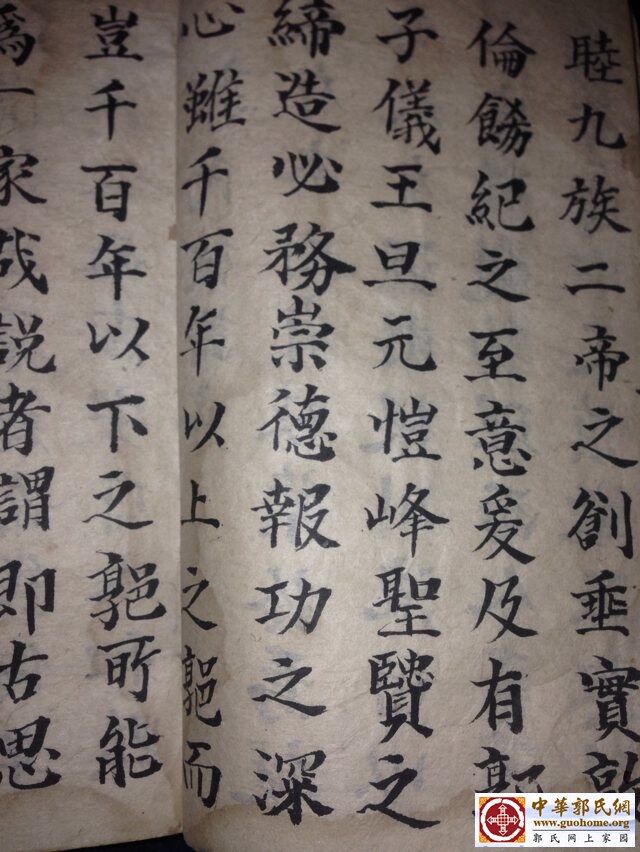 睦九族二帝之創垂實
倫餝紀之至意爰及有郭
子儀王旦元愷峰聖贒之
締造必務崇德報功之深
心雖千百年以上之郭而
豈千百年以下之郭所能
爲一家哉説者謂即古思
中華郭氏網
www.guohome.org
郭氏网上家园